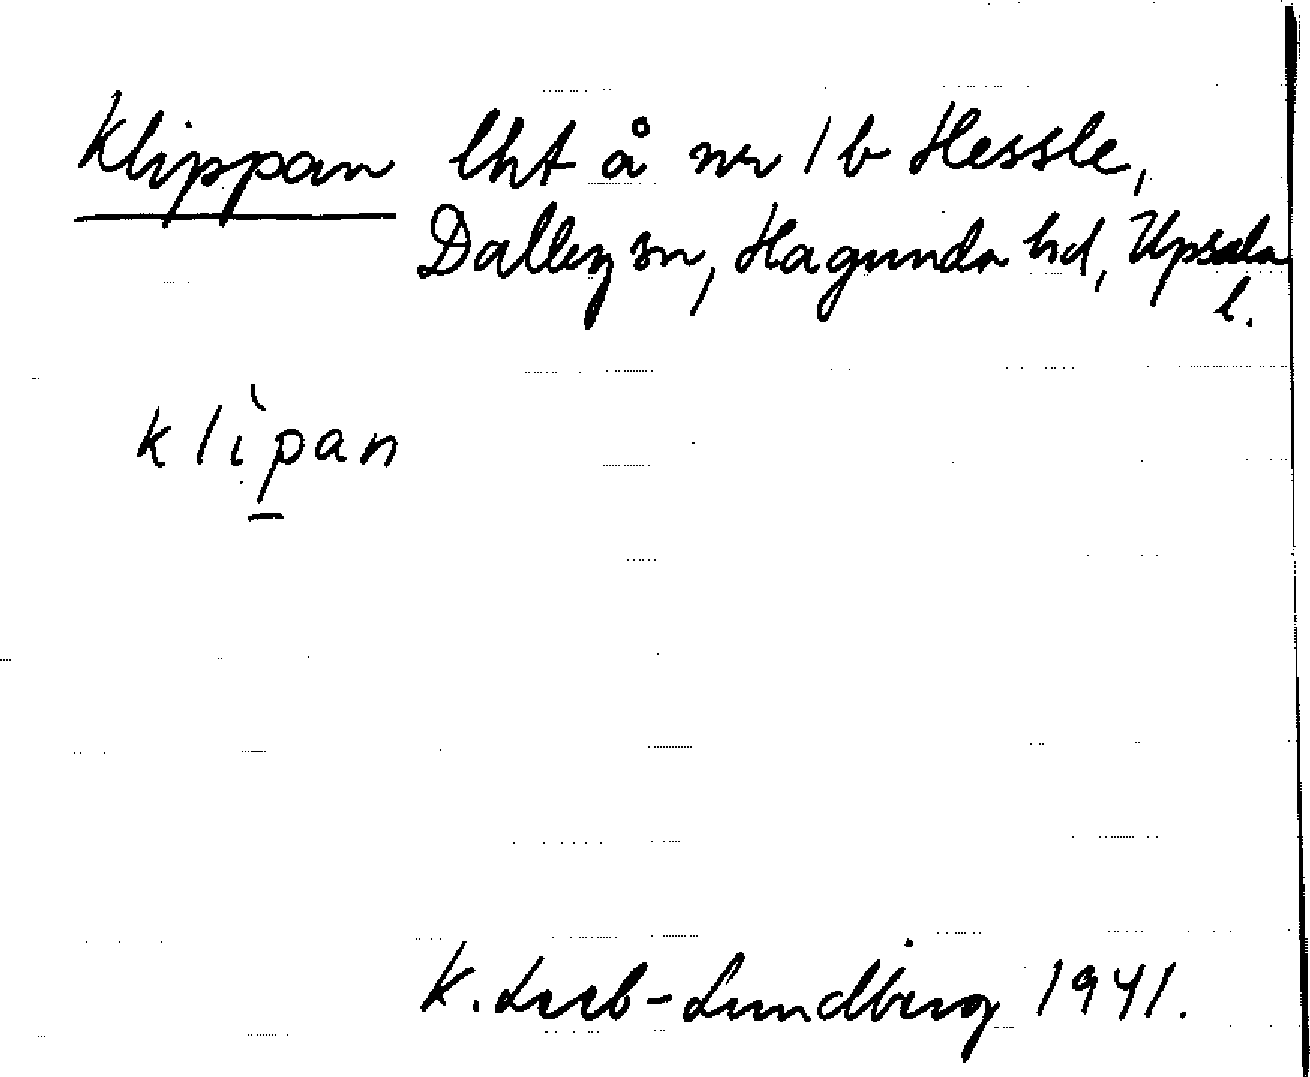 Klippan lht å nr 1 b Hessle,
Dalby sn, Hagunda hd, Upsala
l.
klìpan
K. Leeb-Lundberg 1941.